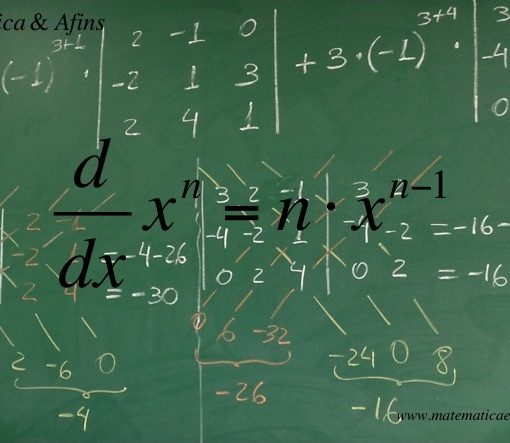 ica & Afins
3+1 3+4
(-1) · | 2 -1 0 | + 3 · (-1) · | 3
-2 1 3 -4
2 4 1 0
d/dx x^n = n · x^{n-1}
2 -1 | 3 2 -1 | 3 2
-2 1 = -4-26 | -4 -2 1 | -4 -2 = -16-
2 4 = -30 | 0 2 4 | 0 2 = -16
0 6 -32
2 -6 0 -24 0 8
-4 -26 -16
www.matematicae